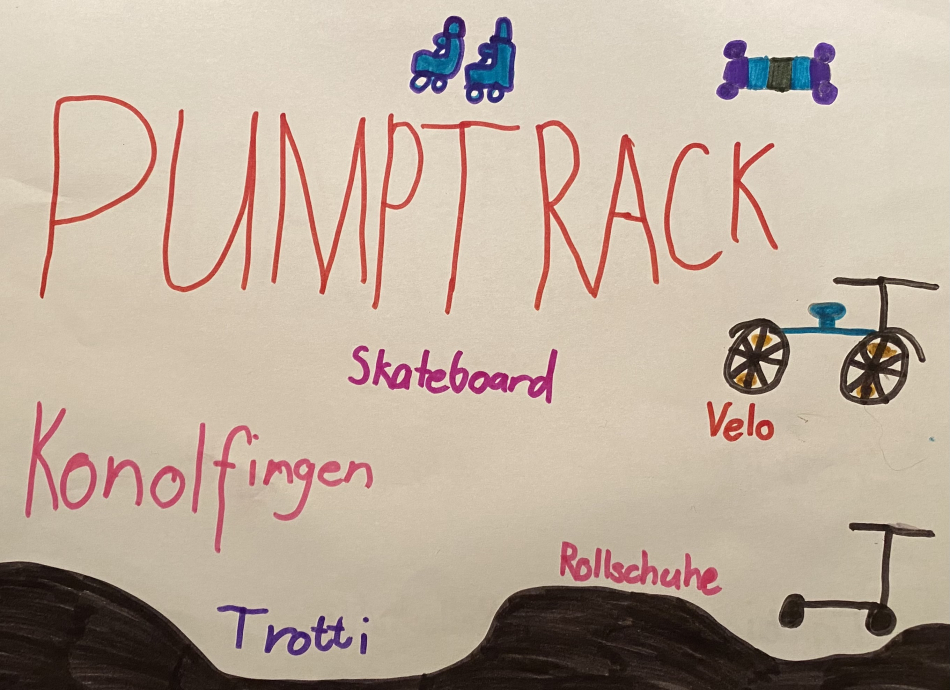 PUMPTRACK
Skateboard
Velo
Konolfingen
Rollschuhe
Trotti